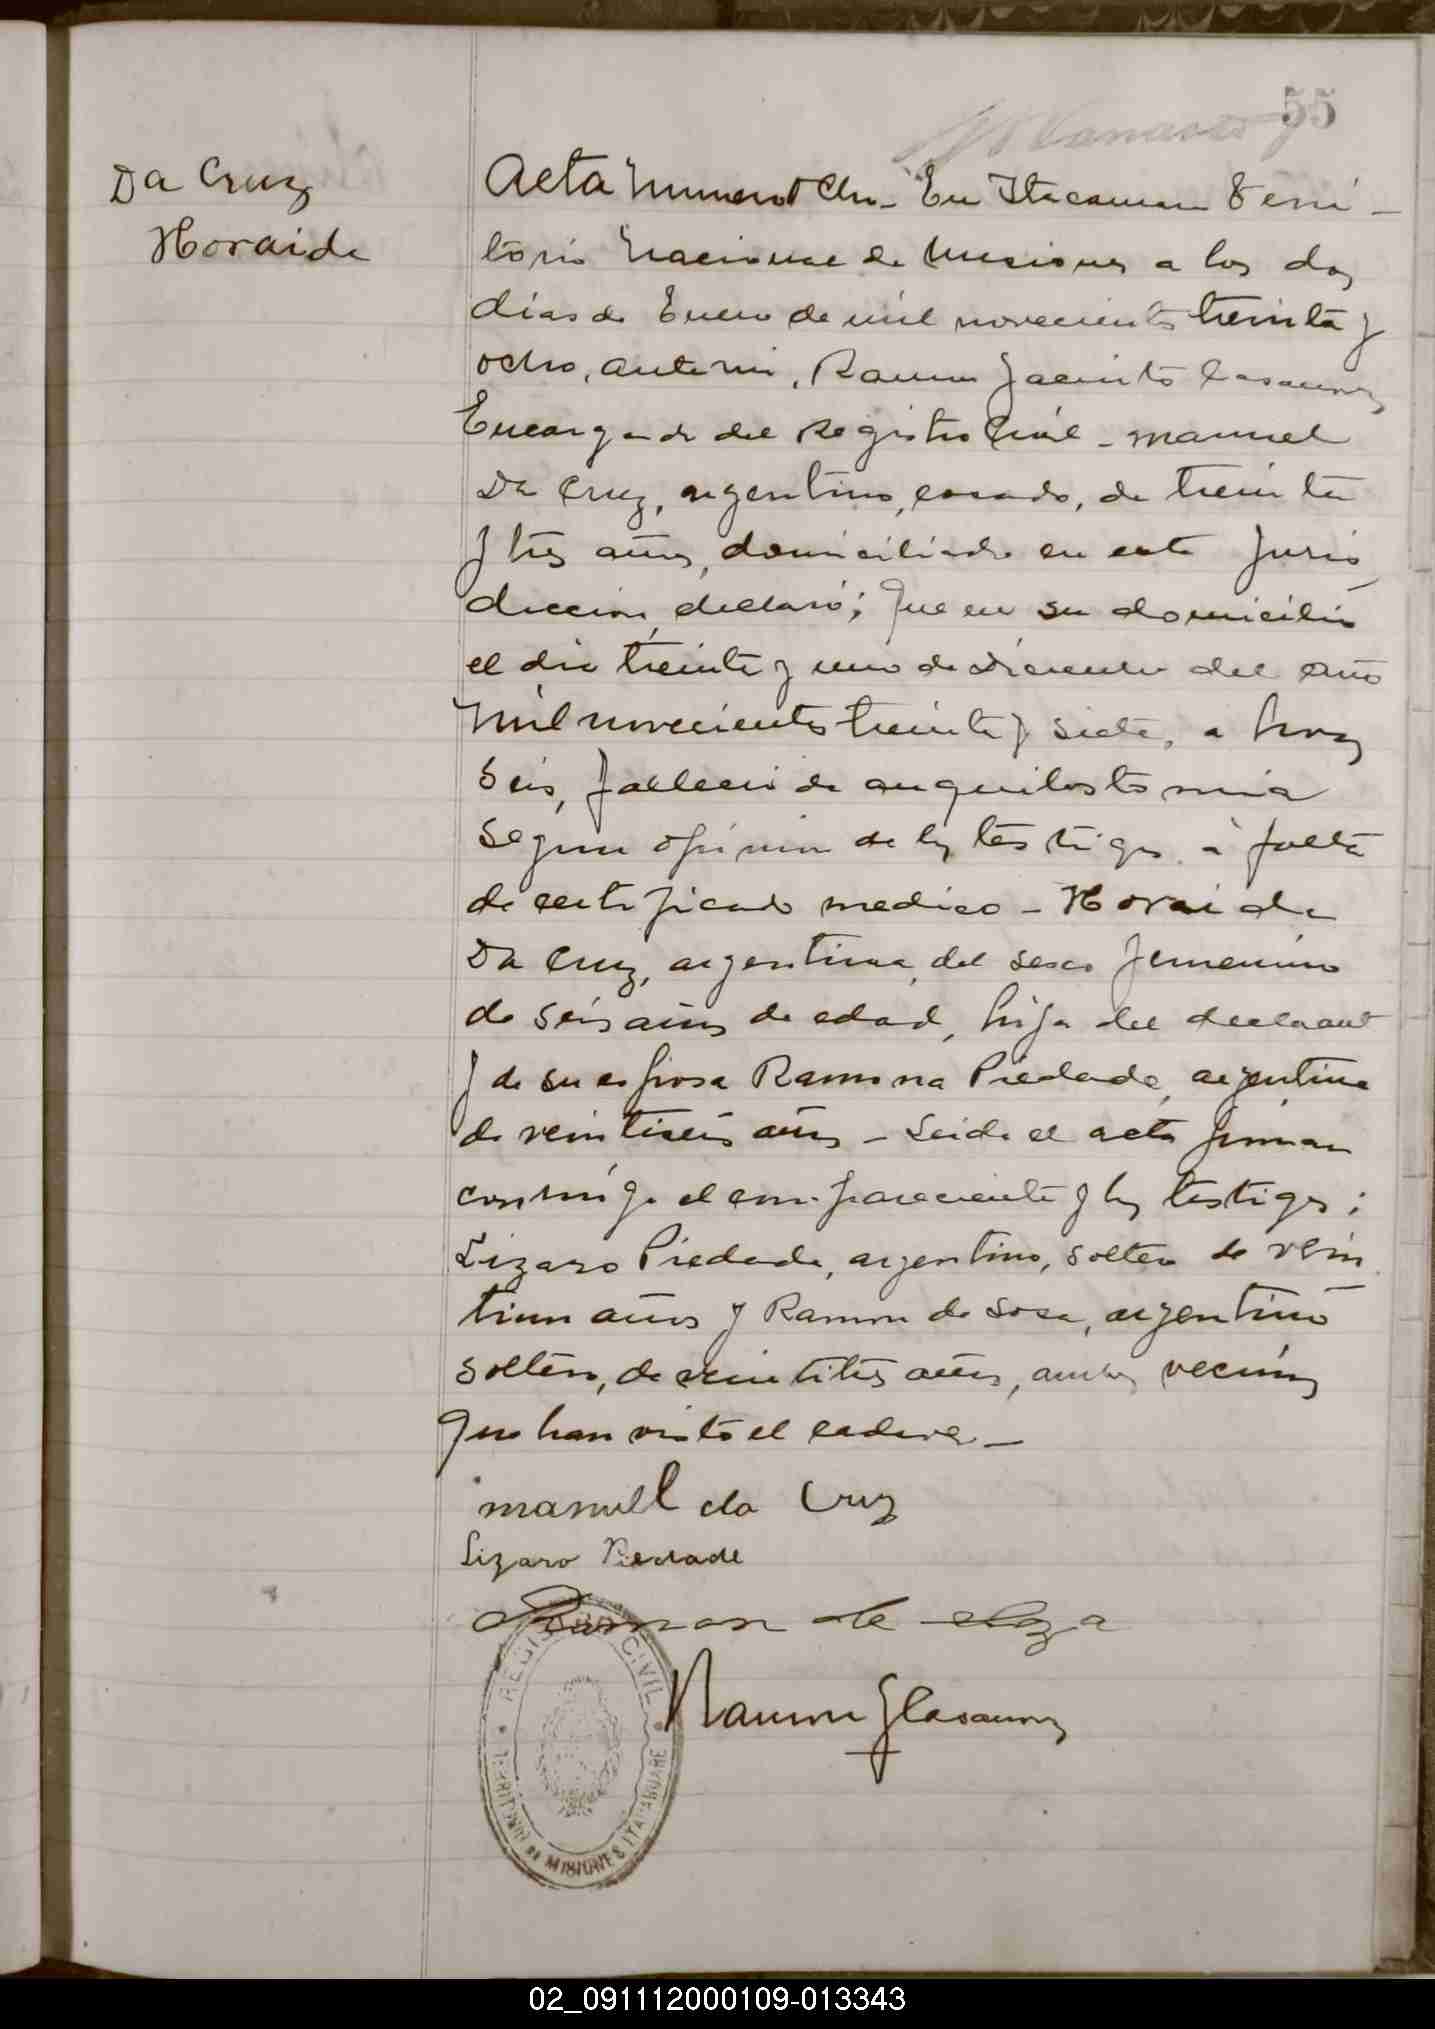 55
Da Cruz
Horaide
Acta Numero Ocho - En Itacaruare Terri-
torio Nacional de Misiones a los dos
dias de Enero de mil novecientos treinta y
ocho, ante mi, Ramon Jacinto
Encargado del Registro Civil - Manuel
Da Cruz, argentino, casado, de treinta
y tres años, domiciliado en esta juris
diccion, declaró; Que en su domicilio
el dia treinta y uno de Diciembre del año
mil novecientos treinta y siete, a horas
seis, fallecio de anquilostomia
segun opinion de los testigos a falta
de certificado medico - Horaide
Da Cruz, argentina, del sexo femenino
de seis años de edad, hija del declarant
y de su esposa Ramona Piedade, argentina
de veintiseis años - Leida el acta firman
conmigo el compareciente y los testigos;
Lizaro Piedade, argentino, soltero de vein
tiun años y Ramon de Sosa, argentino
soltero, de veintitres años, ambos vecinos
que han visto el cadaver -
manuel da Cruz
Lizaro Piedade
Ramon de
Ramon J
REGISTRO CIVIL
TERRITORIO DE MISIONES ITACARUARE
02_091112000109-013343